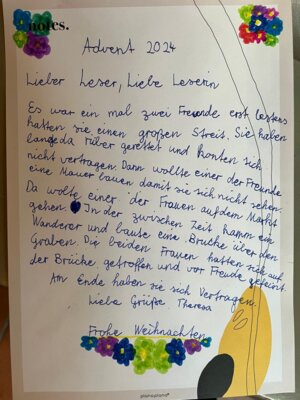 notes.
Advent 2024
Lieber Leser, Liebe Leserin
Es war ein mal zwei Freunde erst lestens
hatten sie einen großen Streit. Sie haben
langeda rüber geredet und konten sich
nicht vertragen. Dann wollte einer der Freunde
eine Mauer bauen damit sie sich nicht sehen.
Da wolte einer der Frauen auf dem Markt
gehen. In der zwischen Zeit kam ein
Wanderer und baute eine Brücke über den
Graben. Die beiden Frauen hatten sich auf
der Brücke getroffen und vor Freude geweint.
Am Ende haben sie sich Vertragen.
Liebe Grüße Theresa
Frohe Weihnachten